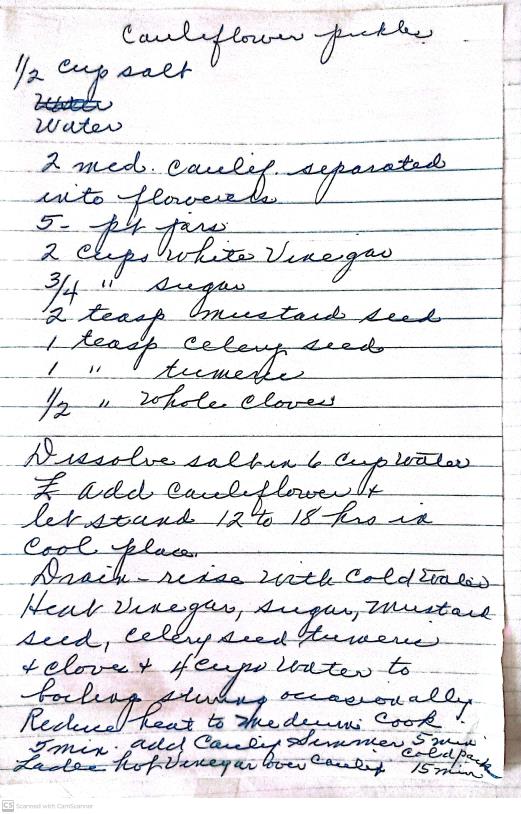 Cauliflower pickles
1/2 cup salt
Water
Water
2 med. caulif. separated
into flowerets
5 - pt jars
2 cups white Vinegar
3/4 " sugar
2 teasp mustard seed
1 teasp celery seed
1 " tumeric
1/2 " whole cloves
Dissolve salt in 6 cup water
& add cauliflower &
let stand 12 to 18 hrs in
cool place.
Drain - rinse with cold water
Heat Vinegar, sugar, mustard
seed, celery seed tumeric
& cloves & 4 cups water to
boiling stirring occasionally
Reduce heat to medium cook
5 min. add Caulif Simmer 5 min
Ladle hot Vinegar over caulif. cold pack
15 min
CS Scanned with CamScanner